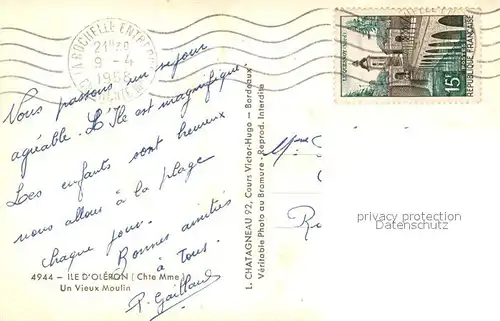 LA ROCHELLE ENTREPOT
21H20
9 - 4
1958
Nous passons un séjour
agréable. L'Ile est magnifique.
Les enfants sont heureux
nous allons à la plage
chaque jour.
Bonnes amitiés
à Tous.
P. Gaillard
4944 - ILE D'OLÉRON (Chte Mme)
Un Vieux Moulin
L. CHATAGNEAU 92, Cours Victor-Hugo - Bordeaux
Véritable Photo au Bromure - Reprod. Interdite
15F
REPUBLIQUE FRANÇAISE
POSTES
Mme
privacy protection
Datenschutz